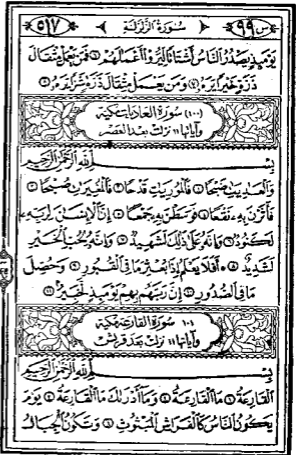 س ٩٩ سُورَةُ الزَّلْزَلَة ٥١٧
يَوْمَئِذٍ يَصْدُرُ النَّاسُ أَشْتَاتًا لِيُرَوْا أَعْمَالَهُمْ ٦ فَمَنْ يَعْمَلْ مِثْقَالَ
ذَرَّةٍ خَيْرًا يَرَهُ ٧ وَمَنْ يَعْمَلْ مِثْقَالَ ذَرَّةٍ شَرًّا يَرَهُ ٨
(١٠٠) سورة العاديات مكية
وآياتها ١١ نزلت بعد العصر
بِسْمِ اللَّهِ الرَّحْمَٰنِ الرَّحِيمِ
وَالْعَٰدِيَٰتِ ضَبْحًا ١ فَالْمُورِيَٰتِ قَدْحًا ٢ فَالْمُغِيرَٰتِ صُبْحًا ٣
فَأَثَرْنَ بِهِ نَقْعًا ٤ فَوَسَطْنَ بِهِ جَمْعًا ٥ إِنَّ الْإِنْسَٰنَ لِرَبِّهِ
لَكَنُودٌ ٦ وَإِنَّهُ عَلَىٰ ذَٰلِكَ لَشَهِيدٌ ٧ وَإِنَّهُ لِحُبِّ الْخَيْرِ
لَشَدِيدٌ ٨ أَفَلَا يَعْلَمُ إِذَا بُعْثِرَ مَا فِي الْقُبُورِ ٩ وَحُصِّلَ
مَا فِي الصُّدُورِ ١٠ إِنَّ رَبَّهُمْ بِهِمْ يَوْمَئِذٍ لَخَبِيرٌ ١١
(١٠١) سورة القارعة مكية
وآياتها ١١ نزلت بعد قريش
بِسْمِ اللَّهِ الرَّحْمَٰنِ الرَّحِيمِ
الْقَارِعَةُ ١ مَا الْقَارِعَةُ ٢ وَمَا أَدْرَىٰكَ مَا الْقَارِعَةُ ٣ يَوْمَ
يَكُونُ النَّاسُ كَالْفَرَاشِ الْمَبْثُوثِ ٤ وَتَكُونُ الْجِبَالُ